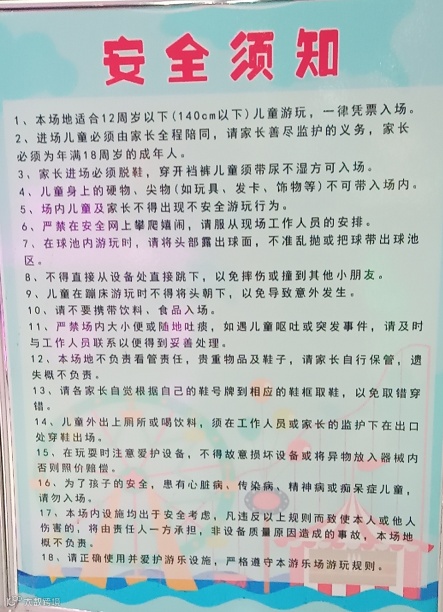 安全须知
1、本场地适合12周岁以下(140cm以下)儿童游玩，一律凭票入场。
2、进场儿童必须由家长全程陪同，请家长善尽监护的义务，家长
必须为年满18周岁的成年人。
3、家长进场必须脱鞋，穿开裆裤儿童须带尿不湿方可入场。
4、儿童身上的硬物、尖物(如玩具、发卡、饰物等)不可带入场内。
5、场内儿童及家长不得出现不安全游玩行为。
6、严禁在安全网上攀爬嬉闹，请服从现场工作人员的安排。
7、在球池内游玩时，请将头部露出球面，不准乱抛或把球带出球池
区。
8、不得直接从设备处直接跳下，以免摔伤或撞到其他小朋友。
9、儿童在蹦床游玩时不得将头朝下，以免导致意外发生。
10、请不要携带饮料、食品入场。
11、严禁场内大小便或随地吐痰，如遇儿童呕吐或突发事件，请及时
与工作人员联系以便得到妥善处理。
12、本场地不负责看管责任，贵重物品及鞋子，请家长自行保管，遗
失概不负责。
13、请各家长自觉根据自己的鞋号牌到相应的鞋框取鞋，以免取错穿
错。
14、儿童外出上厕所或喝饮料，须在工作人员或家长的监护下在出口
处穿鞋出场。
15、在玩耍时注意爱护设备，不得故意损坏设备或将异物放入器械内
否则照价赔偿。
16、为了孩子的安全，患有心脏病、传染病、精神病或痴呆症儿童，
请勿入场。
17、本场内设施均出于安全考虑，凡违反以上规则而致使本人或他人
伤害的，将由责任人一方承担，非设备质量原因造成的事故，本场地
概不负责。
18、请正确使用并爱护游乐设施，严格遵守本游乐场游玩规则。